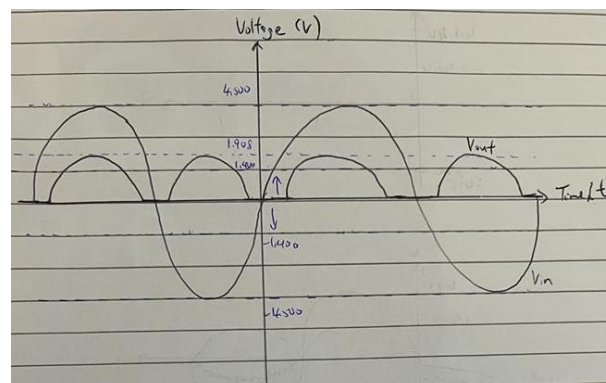 Voltage (V)
4.500
1.908
1.400
Vout
Time, t
-1.400
Vin
-4.500